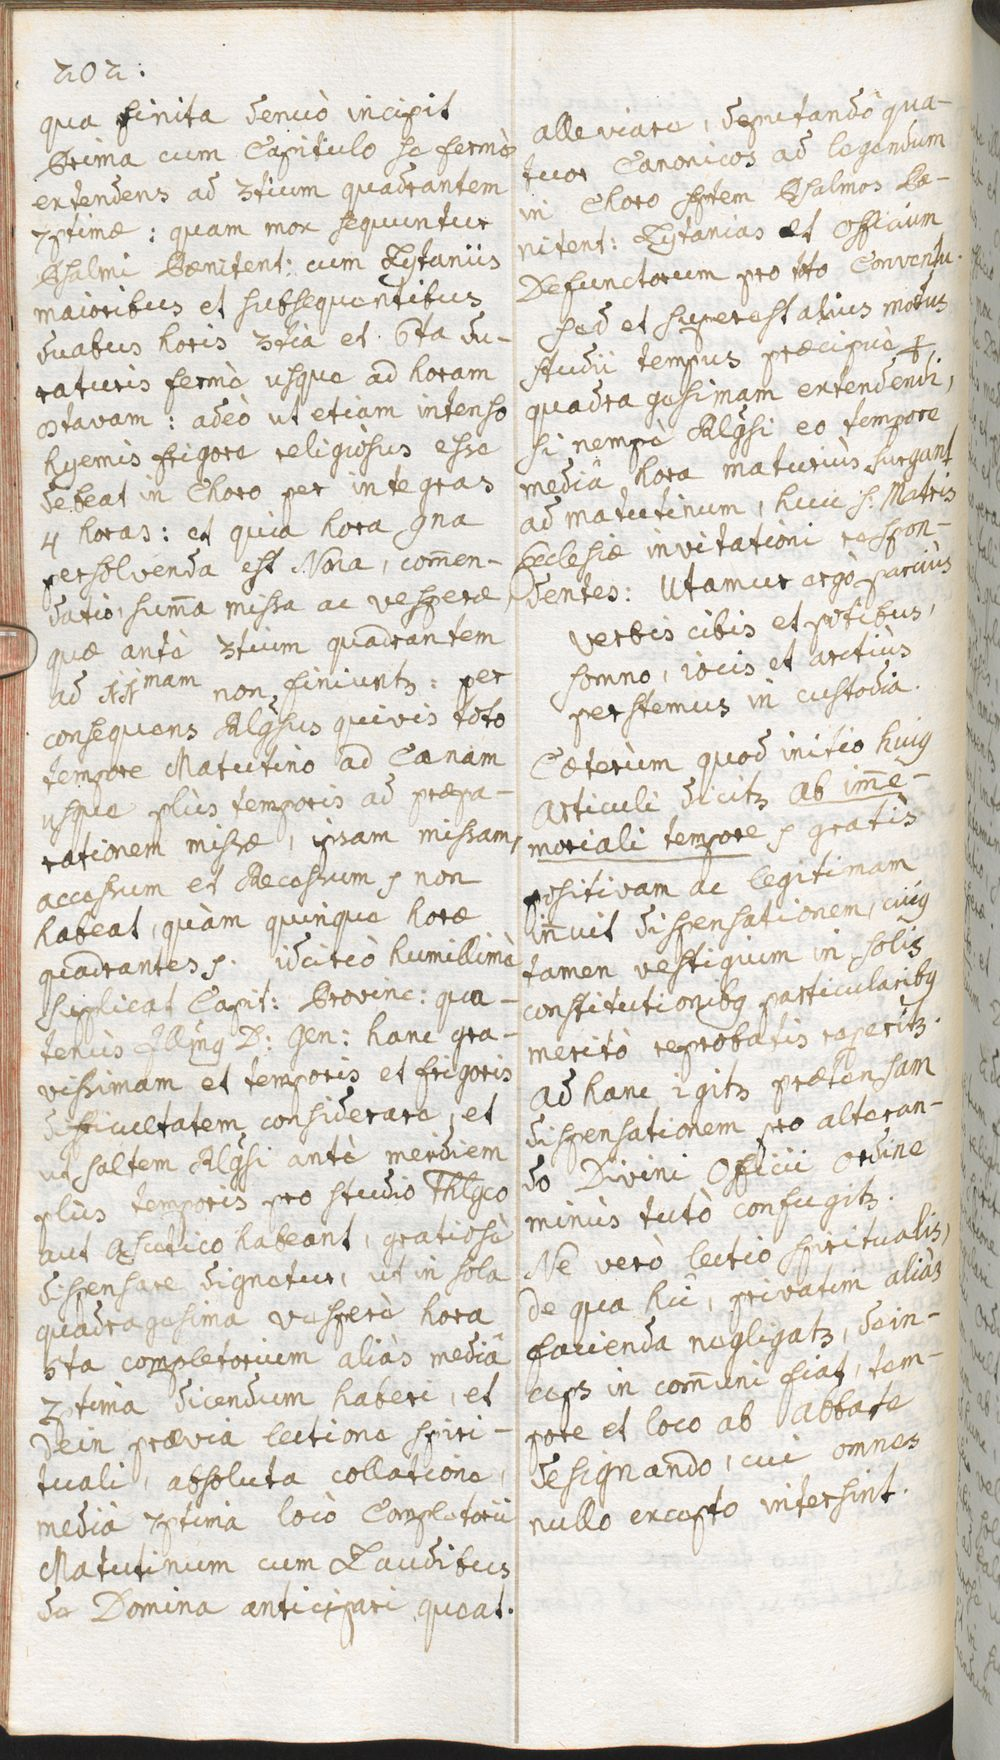 202:
qua finita denuò incipit
Prima cum Capitulo se fermè
extendens ad 3tium quadrantem
7ptimæ: quam mox sequuntur
Psalmi Pœnitent: cum Lytaniis
maioribus et subsequentibus
duabus horis 3tiâ et 6ta du-
raturis fermè usque ad horam
octavam: adeò ut etiam intenso
hyemis frigore religiòsus esse
debeat in Choro per integras
4 horas: et quia hora 9na
persolvenda est Nona, com̄en-
datio, sum̄a missa ac vesperæ,
quæ antè 3tium quadrantem
ad XImam non finiuntz: per
consequens Rlgsus quivis toto
tempore Matutino ad Cœnam
usque plùs temporis ad præpa-
rationem missæ, ipsam missam,
accessum et Recessum ꝭ non
habeat, quàm quinque horæ
quadrantes ꝭ. idcircò humillimè
suplicat Capit: Provinc: qua-
tenùs Illmg D: Gen: hanc gra-
vissimam et temporis et frigoris
difficultatem considerare, et
ut saltem Rlgsi antè meridiem
plùs temporis pro studio Thlgco
aut asutico habeant, gratiosè
dispensare dignetur, ut in sola
quadragesima vesperè hora
5ta completorium aliàs mediâ
7ptimâ dicendum haberi, et
Dein prævia lectione spiri-
tuali, absoluta collatione,
mediâ 7ptimâ locò Completorii
Matutinum cum Laudibus
de Domina anticipari queat.
alleviare, deputandò qua-
tuor Canonicos ad legendum
in Choro septem Psalmos Pœ-
nitent: Lytanias et Officium
Defunctorum pro toto Conventu.
sed et superest alius modus
studii tempus præcipuè ꝑ
quadragesimam extendendi,
si nempè Rlgsi eo tempore
mediâ hora maturiùs surgant
ad matutinum, huic S: Matris
Ecclesiæ invitationi respon-
dentes: Utamur ergò parciùs
verbis cibis et potibus,
somno, iocis et arctiùs
perstemus in custodia.
Cæterùm quod initio huig
articuli dicitz ab im̄e-
moriali tempore ꝭ gratis
positivam ac legitimam
in̄uit dispensationem, cuig
tamen vestigium in solis
constitutionibg particularibg
meritò reprobatis reperitz.
Ad hanc igitz prætensam
dispensationem pro alteran-
do Divini Officii Ordine
minùs tutò confugitz.
Ne verò lectio spiritualis,
de qua hîc, privatim aliàs
facienda negligatz, dein-
ceps in com̄uni fiat, tem-
pore et loco ab Abbate
designando, cui omnes
nullo excepto intersint.